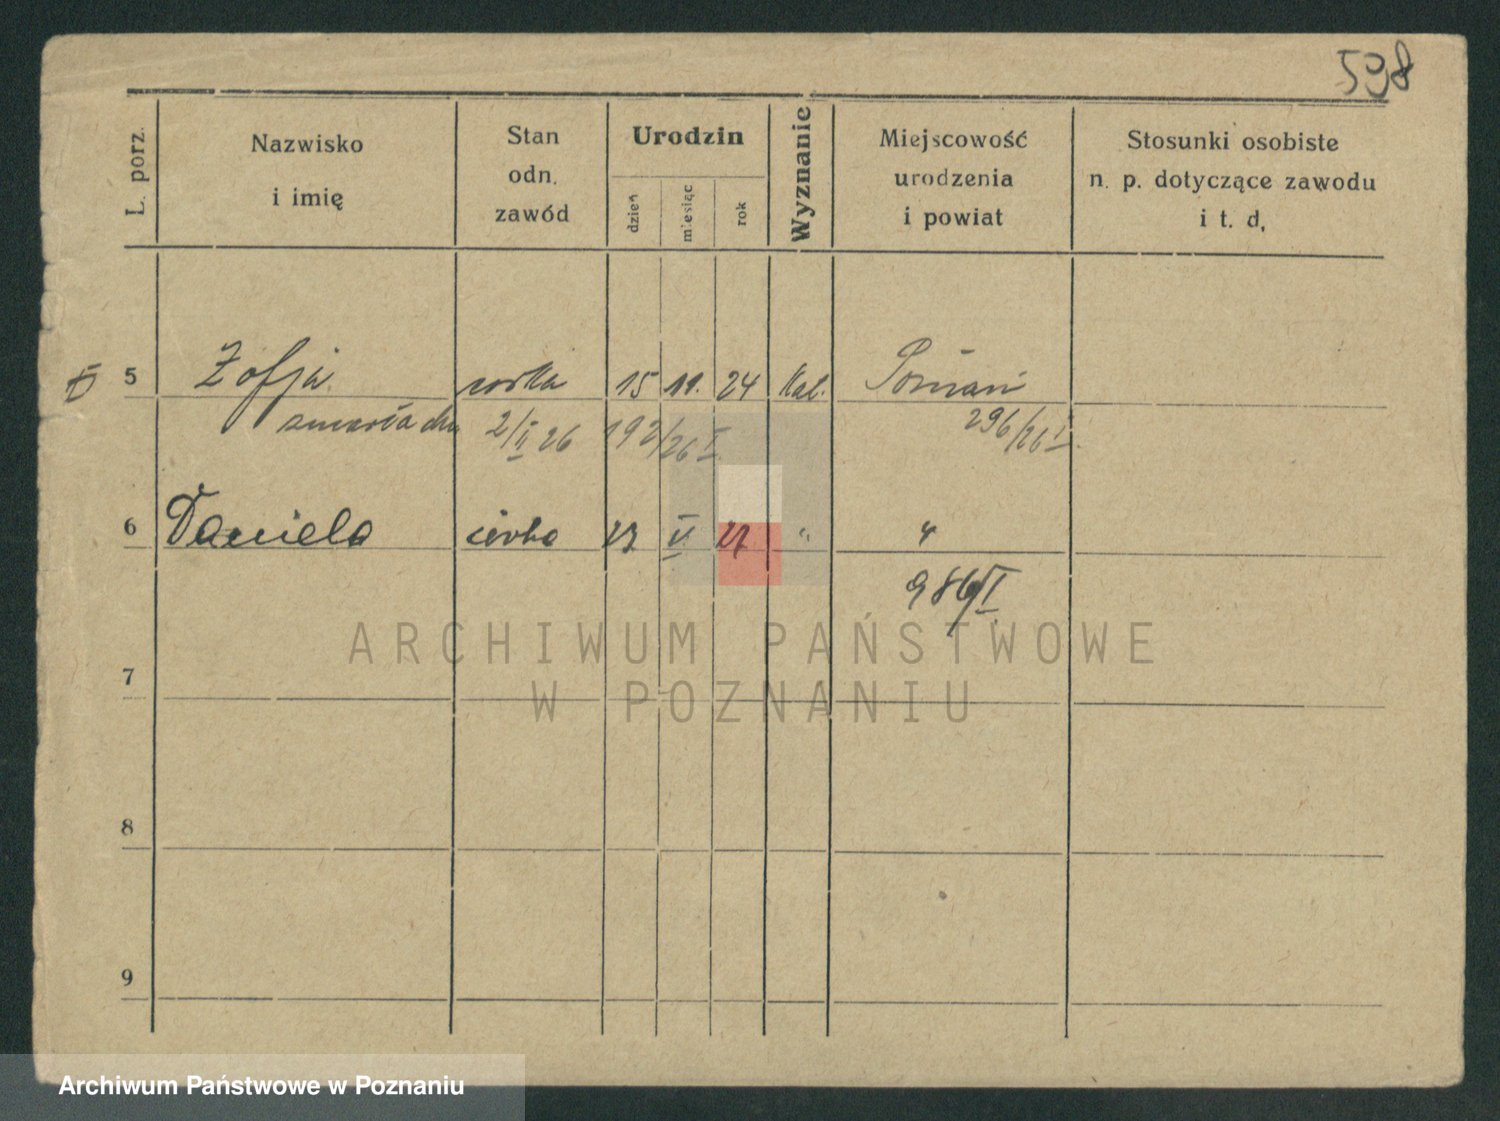 598
L. porz.
Nazwisko
i imię
Stan
odn.
zawód
Urodzin
dzień
miesiąc
rok
Wyznanie
Miejscowość
urodzenia
i powiat
Stosunki osobiste
n. p. dotyczące zawodu
i t. d.
5 Zofja córka 15 11. 24 kat. Poznań
zmarła dn. 2/II 26 192/26 I 296/26 I
6 Daniela córka 23 V 27 " "
986/I
ARCHIWUM PAŃSTWOWE
W POZNANIU
7
8
9
Archiwum Państwowe w Poznaniu